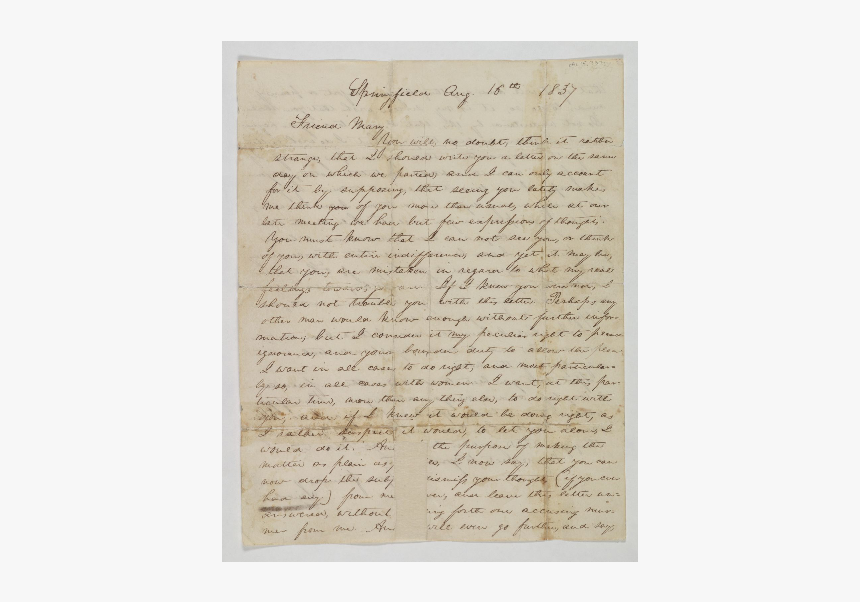 Springfield Aug. 16th 1837
Friend Mary
You will, no doubt, think it rather
strange, that I should write you a letter on the same
day on which we parted; and I can only account
for it by supposing, that seeing you lately makes
me think you of you more than usual, while at our
late meeting we had but few expressions of thoughts.
You must know that I can not see you, or think
of you, with entire indifference; and yet it may be,
that you, are mistaken in regard to what my real
feelings towards you are. If I knew you were not, I
should not trouble you with this letter. Perhaps any
other man would know enough without further infor-
mation; but I consider it my peculiar right to plead
ignorance, and your bounden duty to allow the plea.
I want in all cases to do right, and most particular-
ly so, in all cases with women. I want, at this par-
ticular time, more than any thing else, to do right with
you, and if I knew it would be doing right, as
I rather suspect it would, to let you alone, I
would do it. And the purpose of making the
matter as plain as I now say, that you can
now drop the sub thoughts (if you ever
had any) from me and leave this letter un-
answered, without forth one accusing mur-
mer from me. And will even go further, and say,